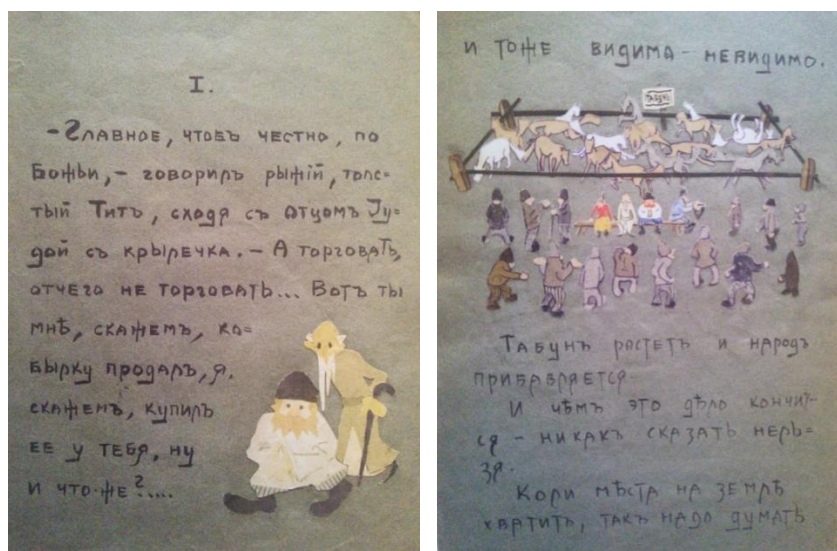 I.
- Главное, чтобъ честно, по
Божьи,- говорилъ рыжій, толс-
тый Титъ, сходя съ отцомъ Іу=
дой съ крылечка. - А торговать,
отчего не торговать... Вотъ ты
мнѣ, скажемъ, ко=
былку продалъ, я,
скажемъ, купилъ
ее у тебя, ну
и что-же?....
и тоже видима-невидимо.
ТАБУНЪ
Табунъ ростетъ и народъ
прибавляется
И чѣмъ это дѣло кончит-
ся - никакъ сказать нель=
зя.
Коли мѣста на землѣ
хватитъ, такъ надо думать